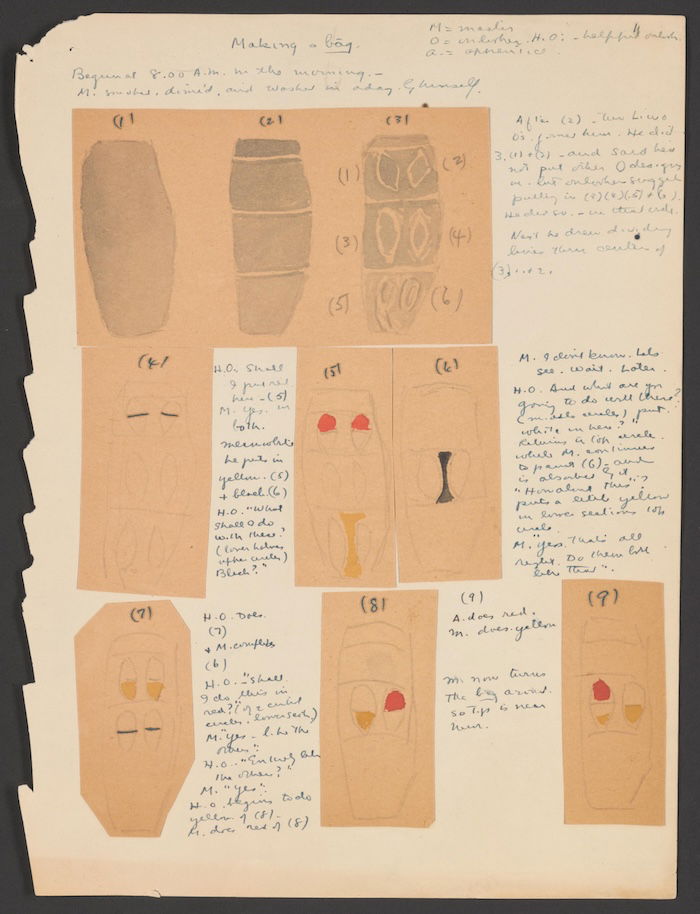 Making a bag.
M = master
O = onlooker. H.O. = helpful onlook.
A. = apprentice.
Began at 8.00 A.M. in the morning. -
M. smoked, dimmed, and washed in a day. by himself.
(1)
(2)
(3)
(1)
(2)
(3)
(4)
(5)
(6)
After (2) - two
O's. joined him. He did
3. (1) + (2) - and said he
not put other O designs
in. but onlooker suggest
putting in (3) (4) (5) + (6).
He did so. - in that order.
Next he drew dividing
lines thru center of
(3). 1+2.
(4)
H.O. Shall
I put red
here - (5)
M. Yes. in
both.
meanwhile
he puts in
yellow. (5)
+ black. (6)
H.O. "What
shall I do
with these?
(lower halves
upper circles)
Black?"
(5)
(6)
M. I don't know. Lets
see. Wait. Later.
H.O. And what are you
going to do with these?
(middle circles) put
white in here?"
Returns to top circle.
while M. continues
to paint (6) - and
is absorbed by it
"How about this",
puts a little yellow
in lower sections top
circle.
M. "Yes. That's all
right. Do them both
like that".
(7)
H.O. Does
(7)
+ M. completes
(6)
H.O. - "Shall
I do this in
red?" (of
circles. lower section)
M. "Yes - like the
others".
H.O. "Entirely like
the others?"
M. "Yes".
H.O. begins to do
yellow of (8) -
M. does red of (8)
(8)
(9)
A. does red.
M. does yellow
M. now turns
the bag around.
so top is near
him.
(9)